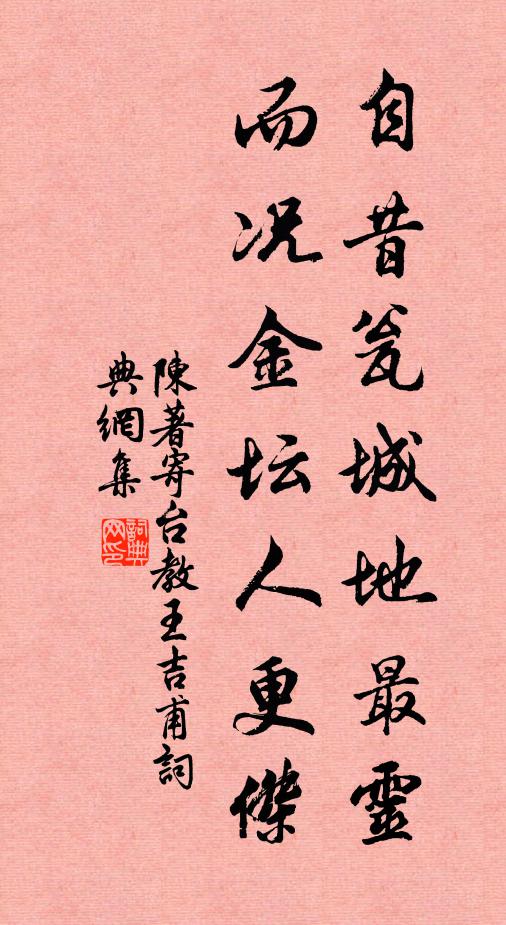 自昔瓮城地最靈
而况金坛人更傑
陳著寄台教王吉甫詞
典網集
詞典
网印